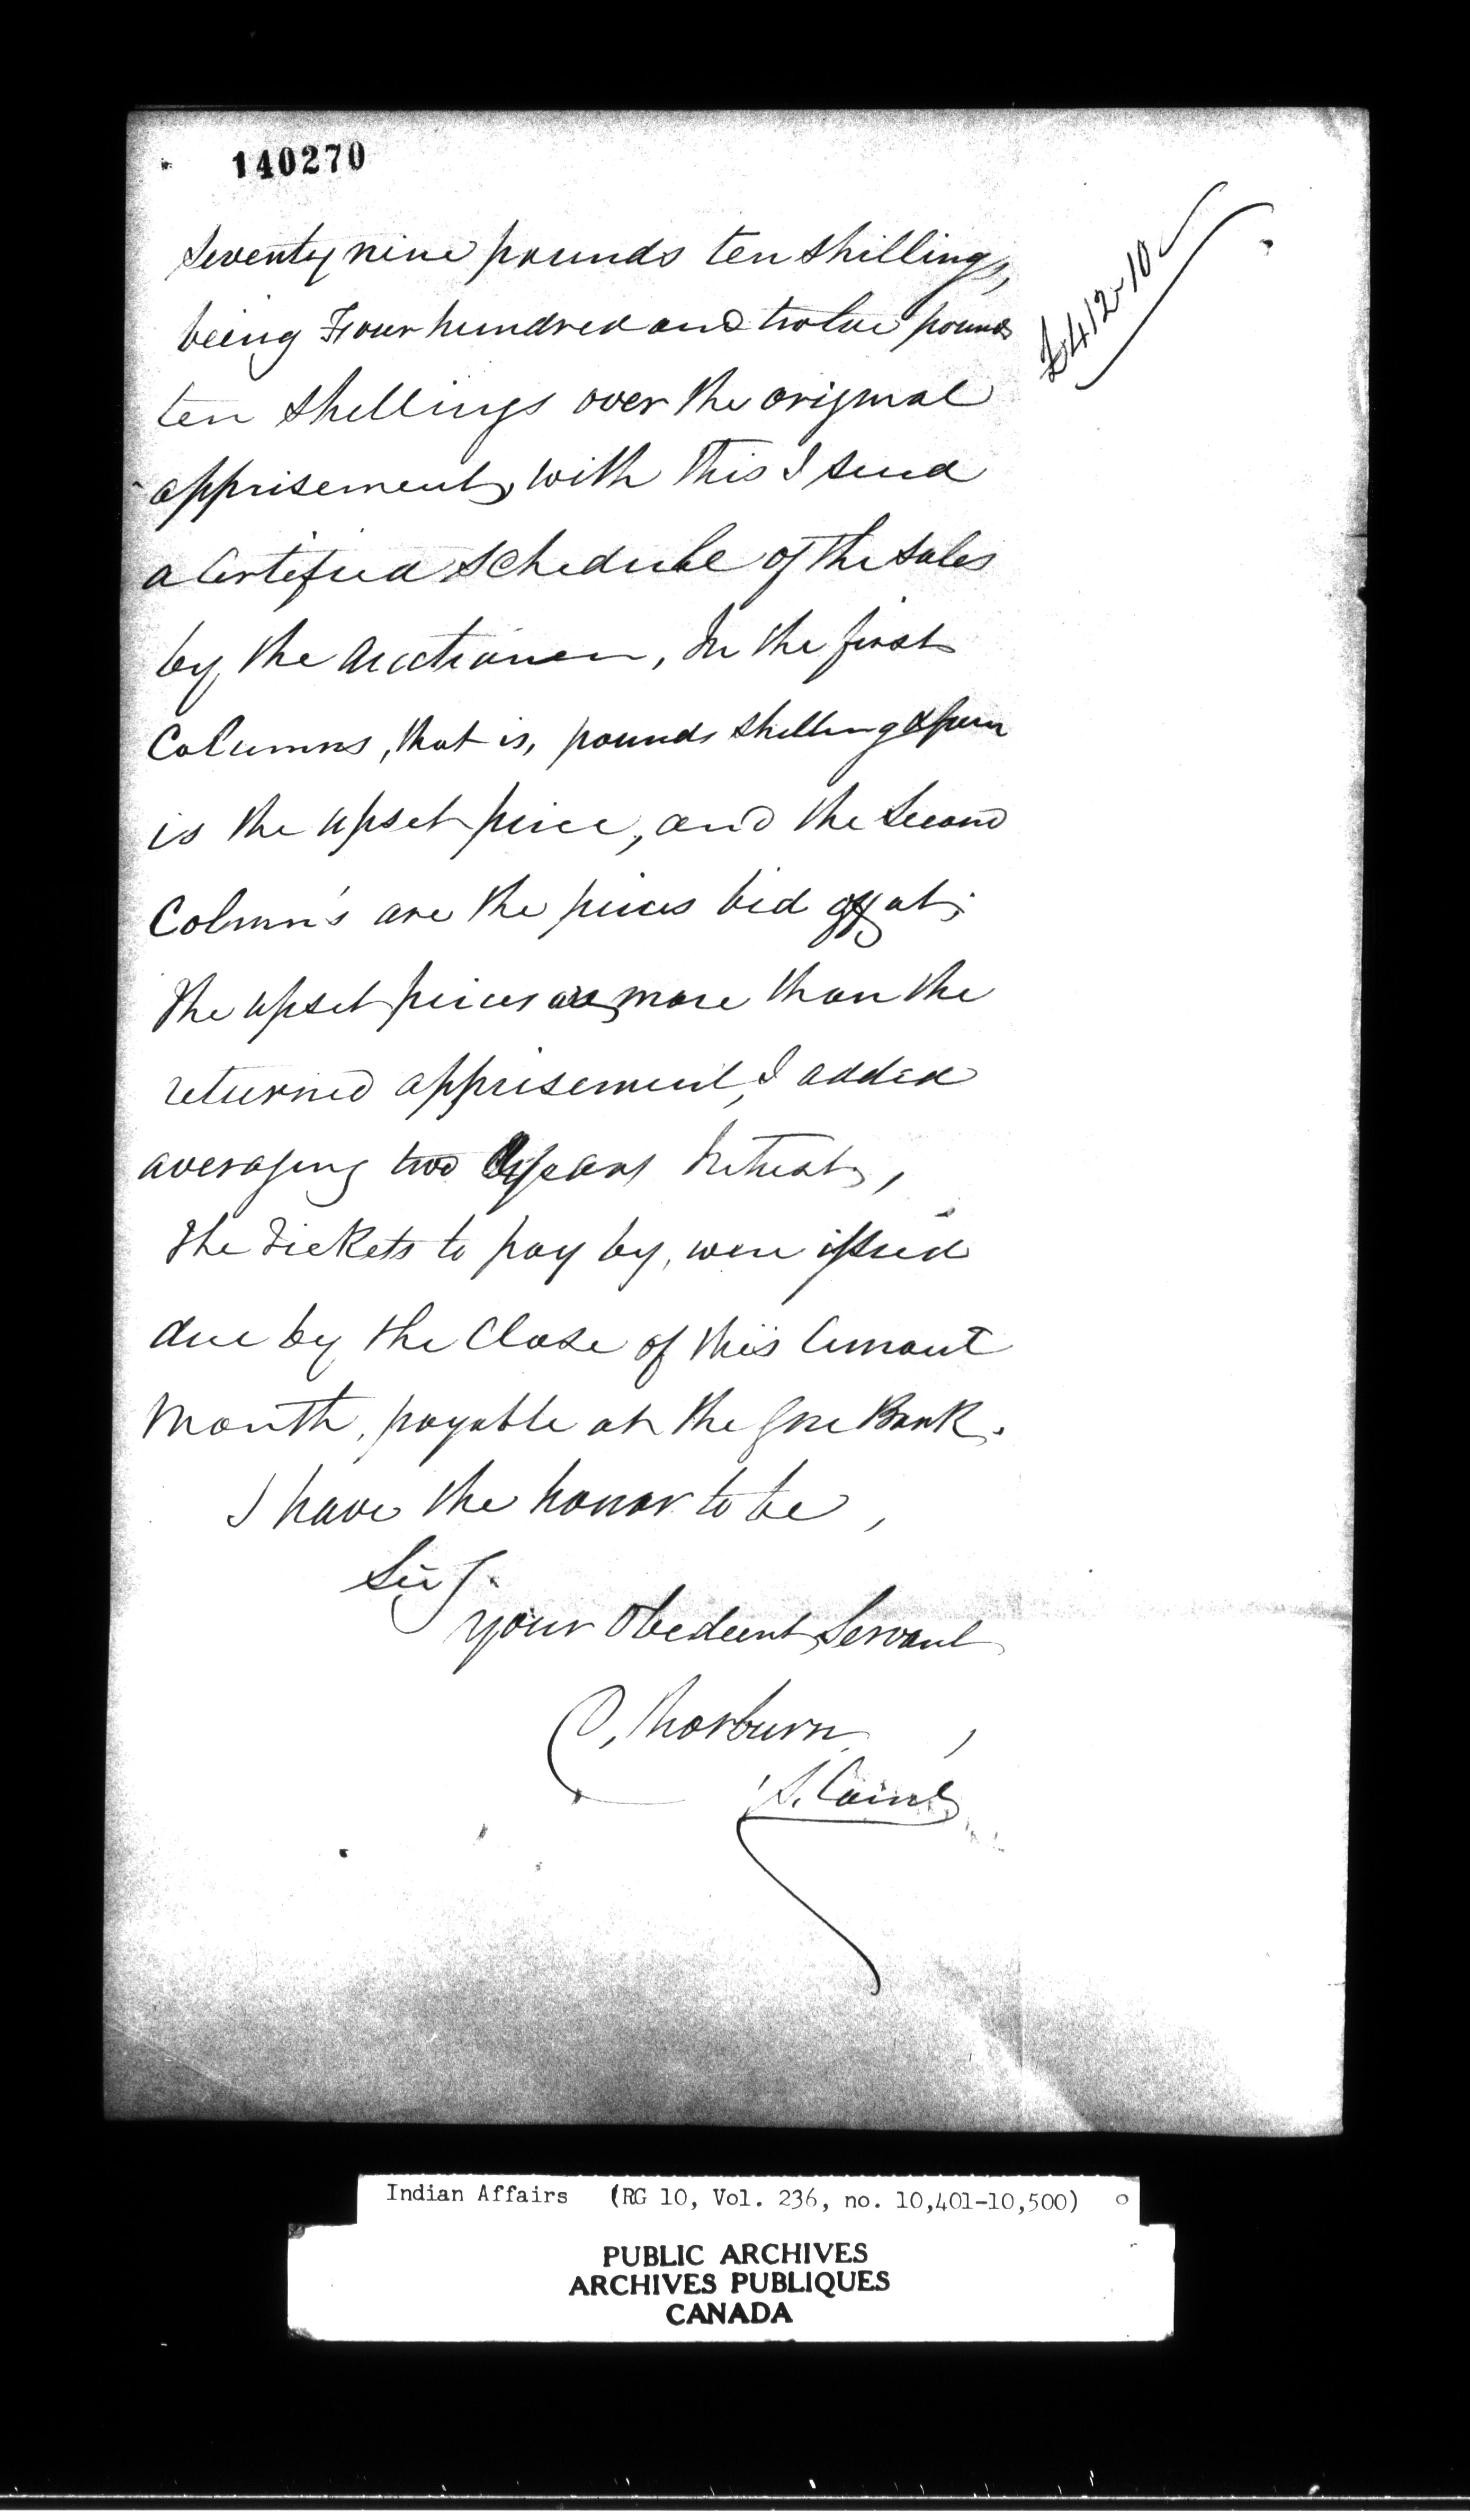 140270
£412-10
Seventy nine pounds ten shillings,
being Four hundred and twelve pounds
ten shillings over the original
apprisement, with this I send
a Certified Schedule of the Sales
by the Auctioneer, In the first
Columns, that is, pounds shilling & pence
is the upset price, and the Second
Column's are the prices bid off at;
The upset prices are more than the
returned apprisement, I added
averaging two years Interest,
The Tickets to pay by, were issued
due by the Close of this Currant
Month, payable at the Gore Bank.
I have the honor to be,
Sir,
your Obedient Servant
D. Thorburn
Indian Affairs (RG 10, Vol. 236, no. 10,401-10,500)
PUBLIC ARCHIVES
ARCHIVES PUBLIQUES
CANADA